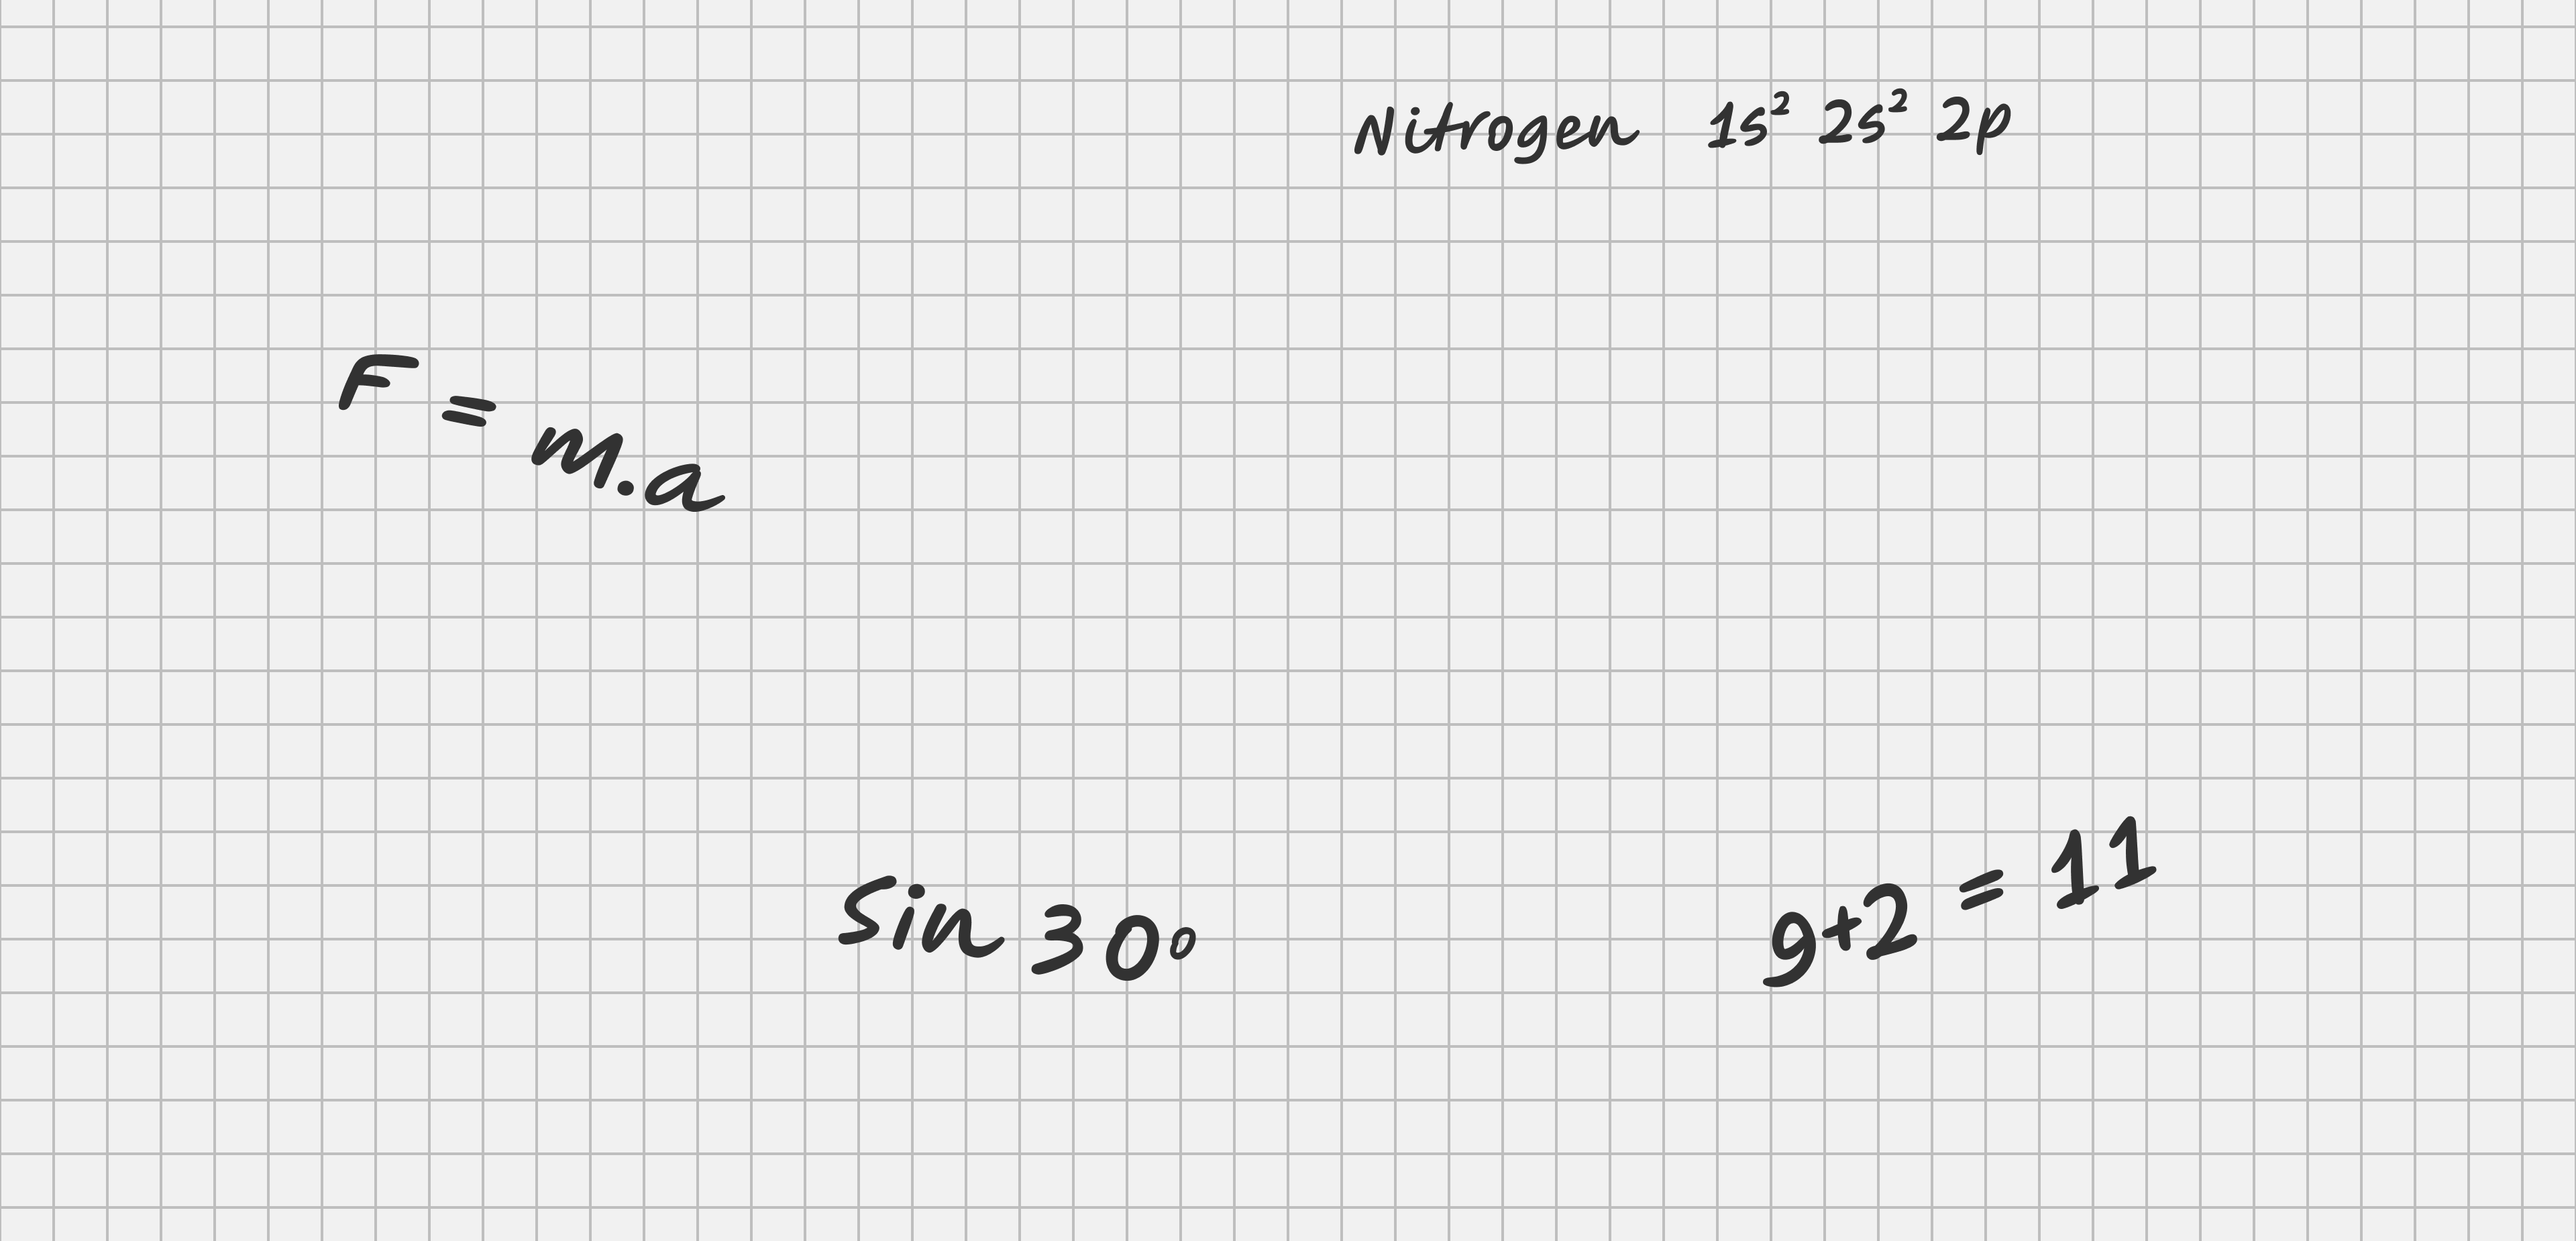 Nitrogen 1s² 2s² 2p
F = m.a
Sin 30°
9+2 = 11